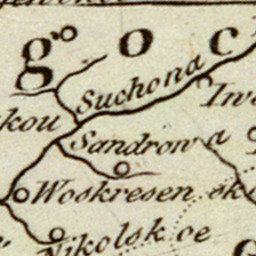 g o c
Suchona
kou
Sandrowa
Woskresenskoe
Nikolskoe